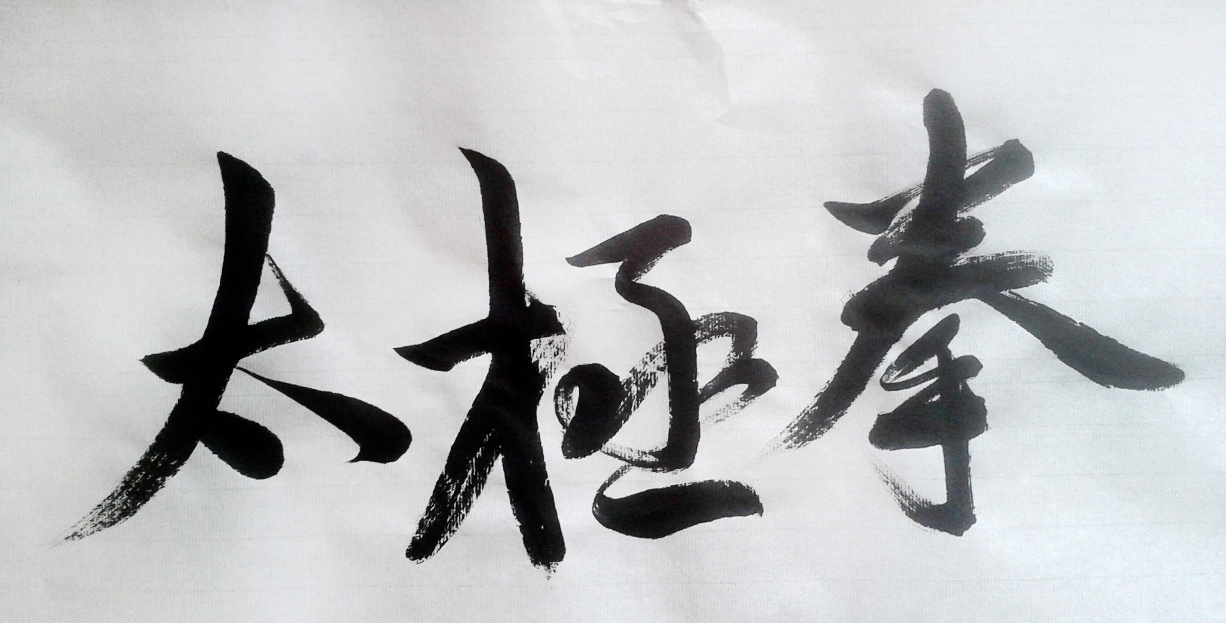 太極拳